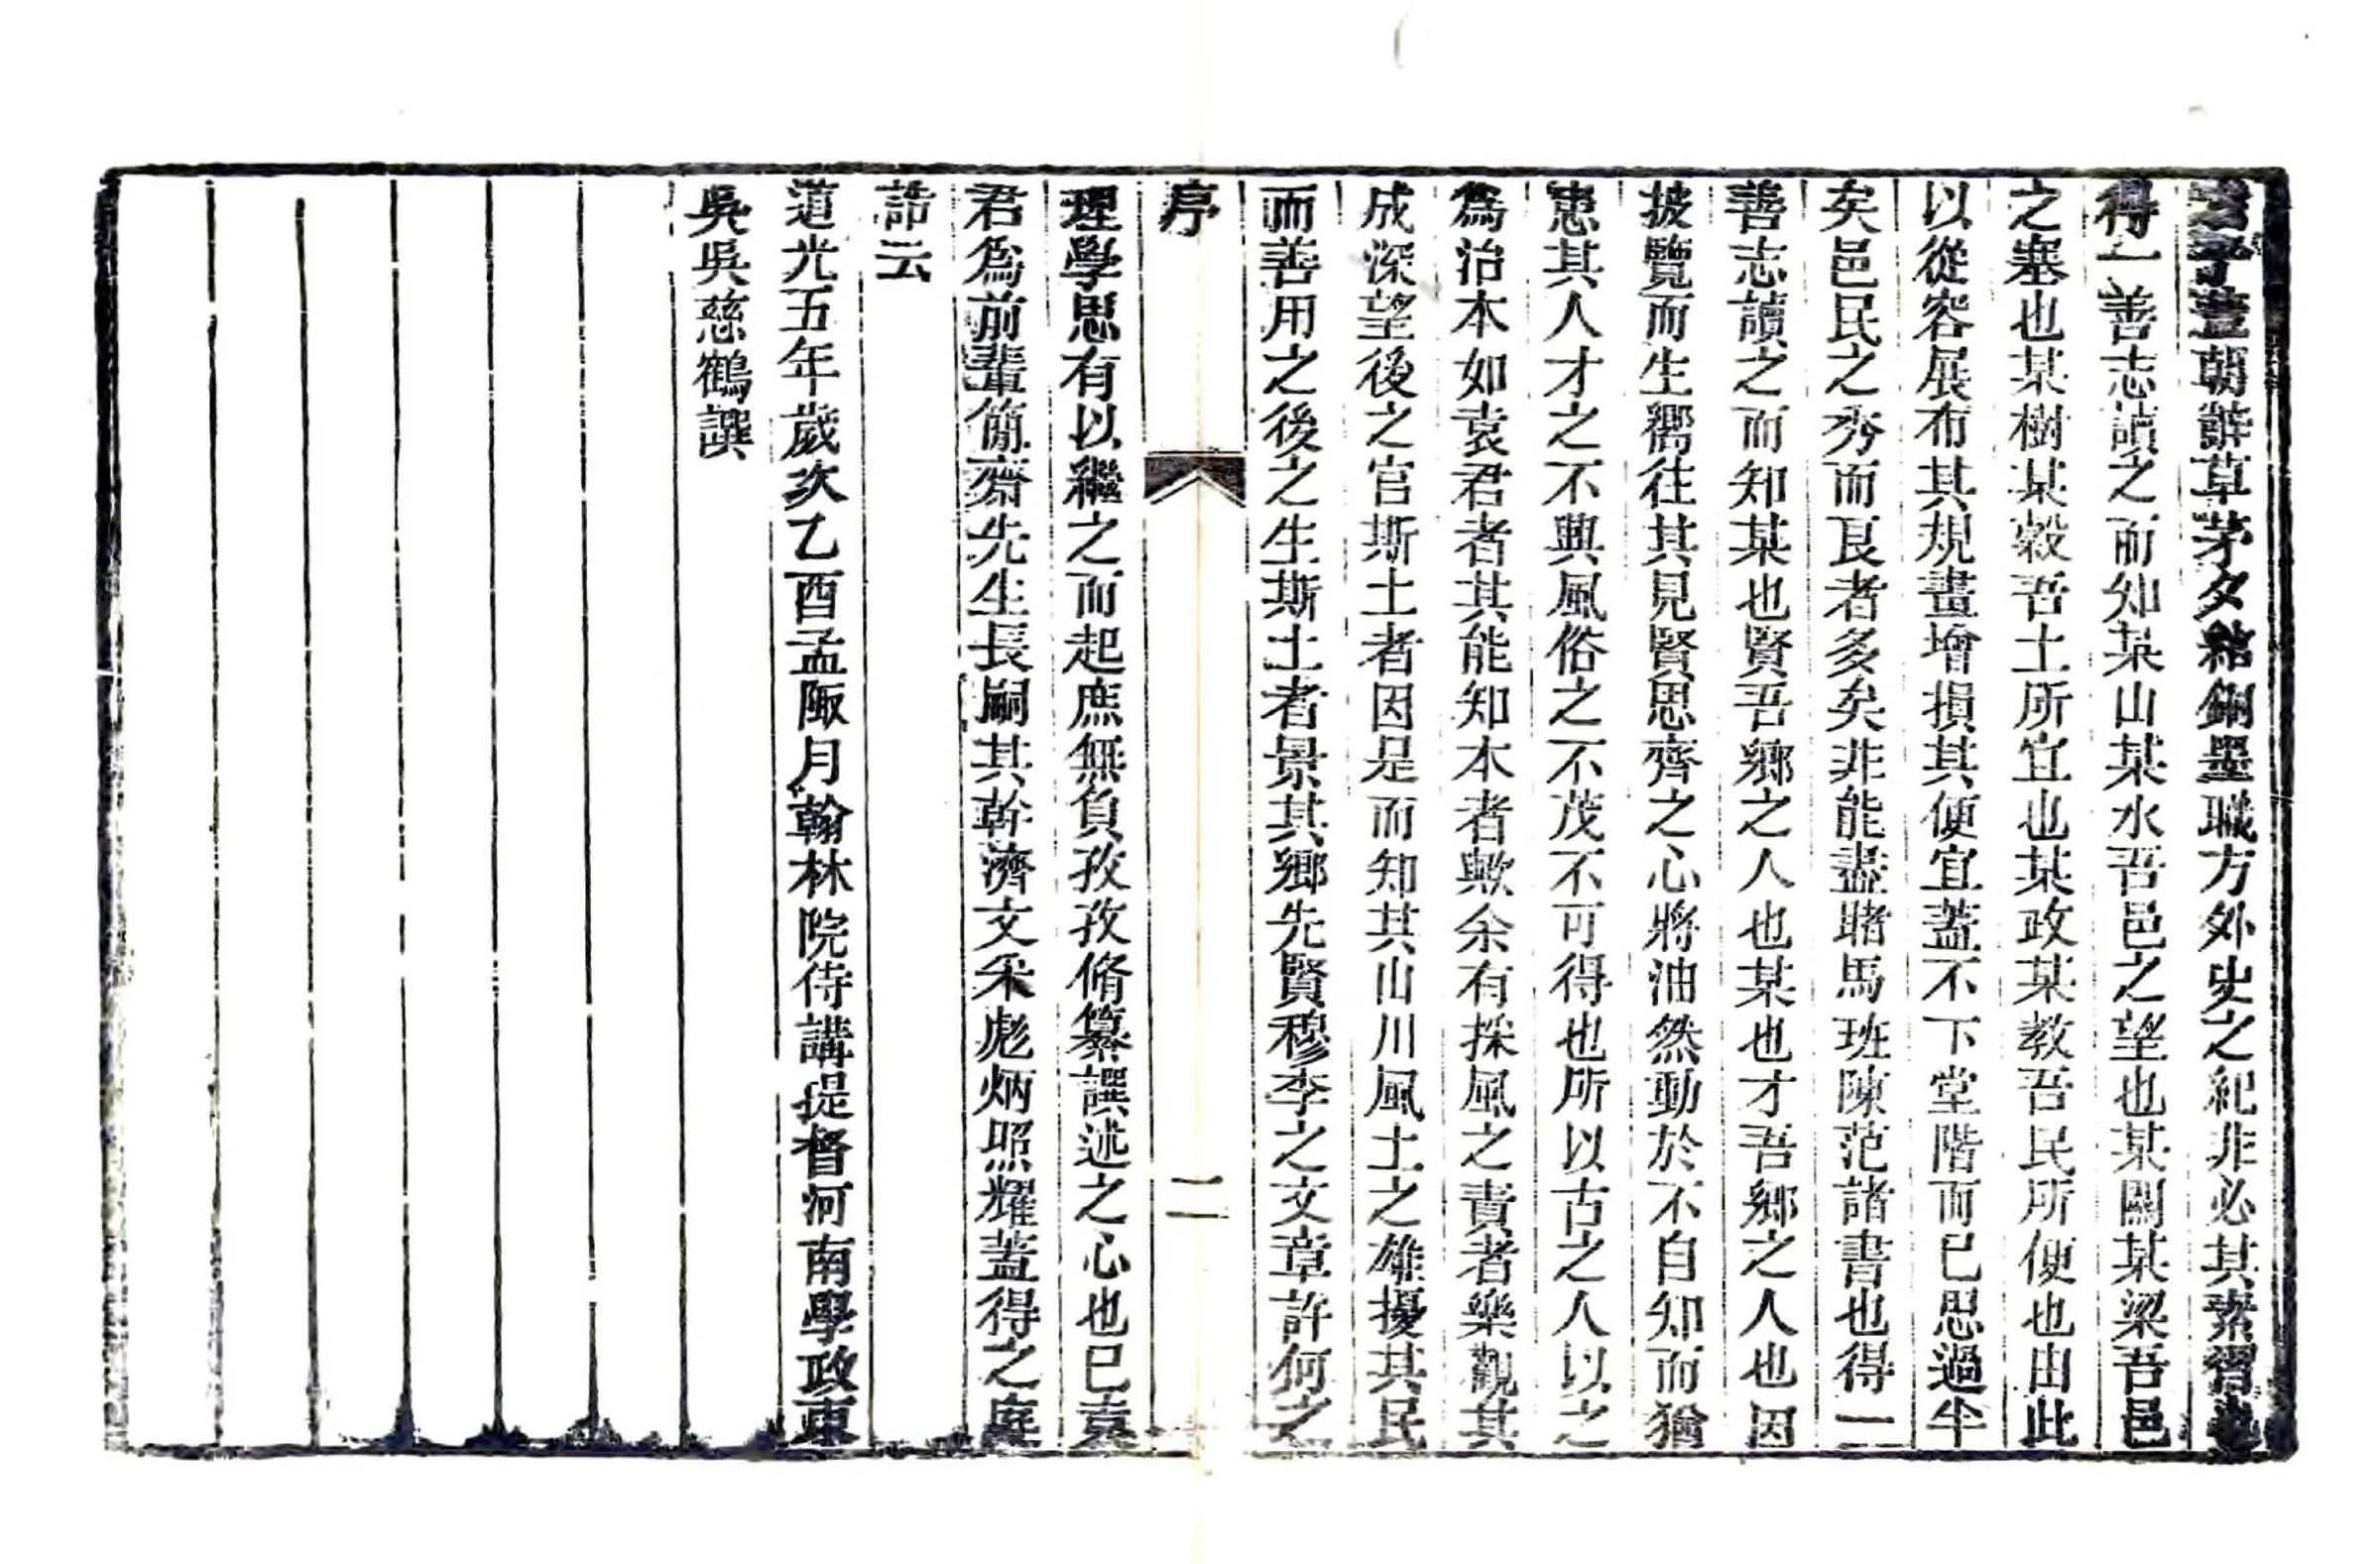 君子蓋朝辭草茅夕綰銅墨職方外史之紀非必其素習也
得一善志讀之而知某山某水吾邑之望也某關某梁吾邑
之塞也某樹某穀吾土所宜也某政某教吾民所便也由此
以從容展布其規畫增損其便宜蓋不下堂階而已思過半
矣邑民之秀而良者多矣非能盡睹馬班陳范諸書也得一
善志讀之而知某也賢吾鄉之人也某也才吾鄉之人也因
披覽而生嚮往其見賢思齊之心將油然動於不自知而猶
患其人才之不興風俗之不茂不可得也所以古之人以之
為治本如袁君者其能知本者歟余有採風之責者樂觀其
成深望後之官斯土者因是而知其山川風土之雄擾其民
而善用之後之生斯土者景其鄉先賢穆李之文章許何之
序
二
理學思有以繼之而起庶無負孜孜脩纂譔述之心也已袁
君爲前輩簡齋先生長嗣其幹濟文采彪炳照耀蓋得之庭
誥云
道光五年歲次乙酉孟陬月翰林院侍講提督河南學政東
吳吳慈鶴譔